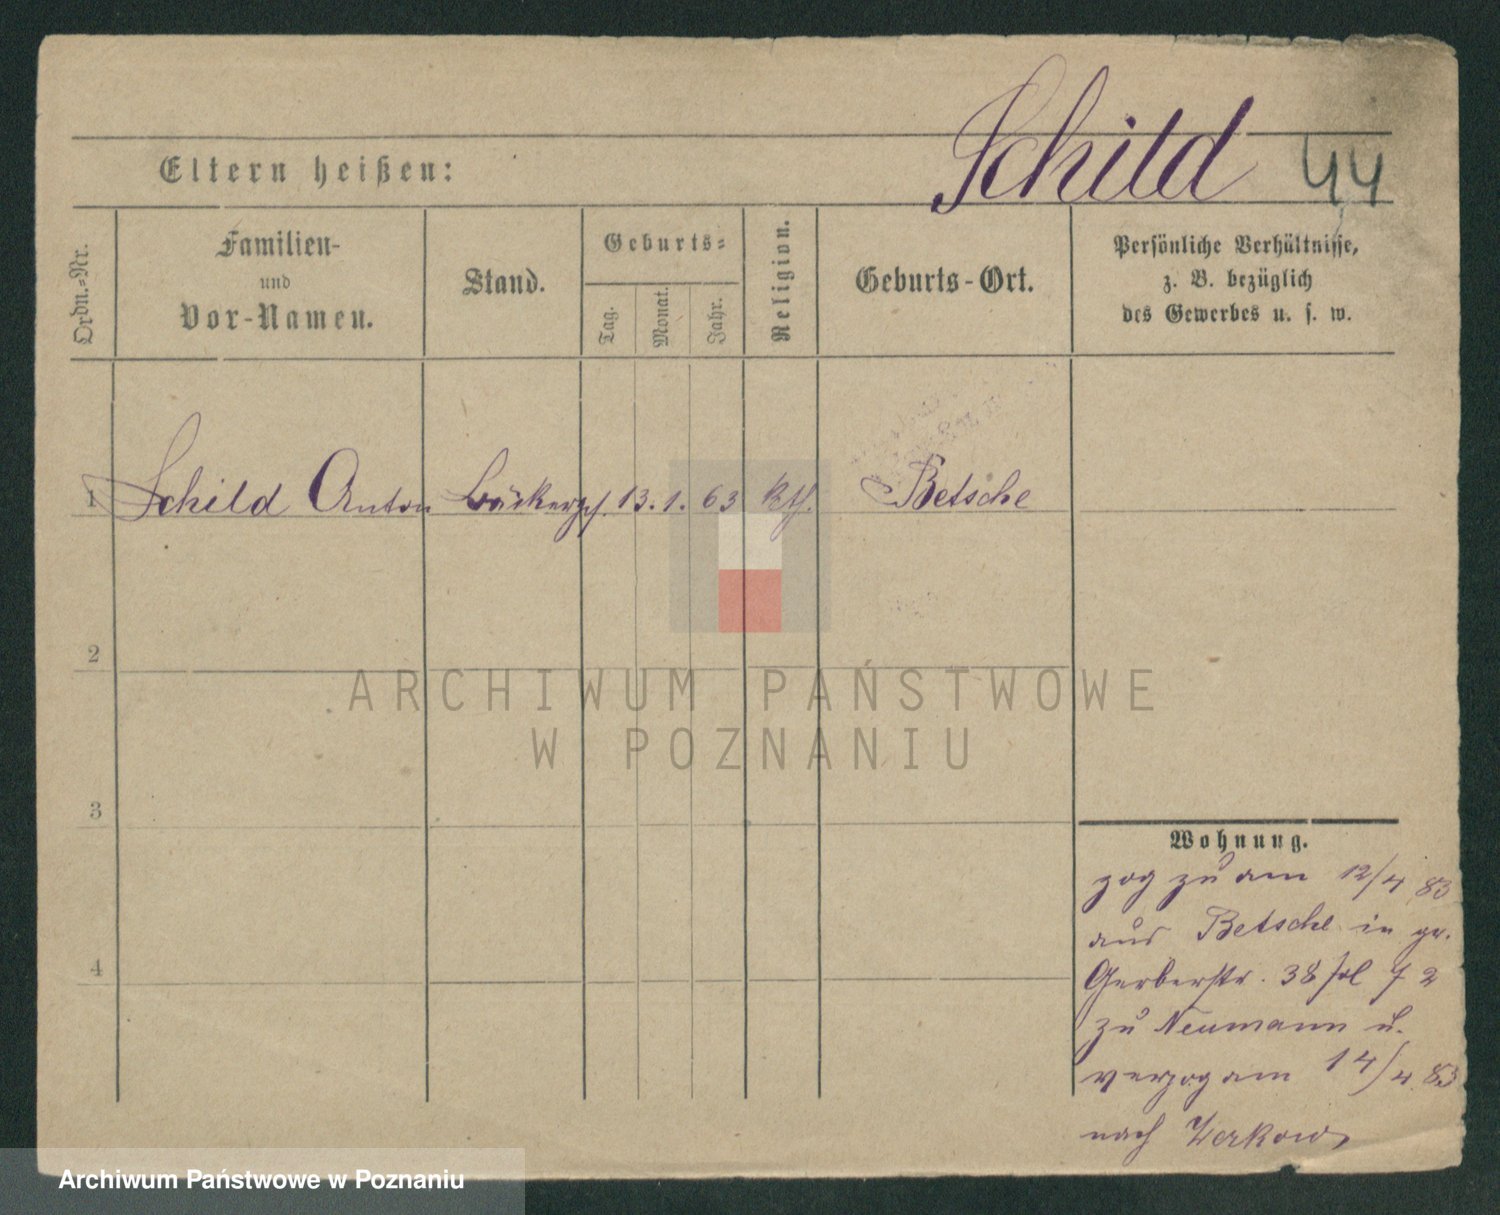 Schild 44
Eltern heißen:
Ordn.-Nr.
Familien-
und
Vor-Namen.
Stand.
Geburts-
Tag.
Monat.
Jahr.
Religion.
Geburts-Ort.
Persönliche Verhältnisse,
z. B. bezüglich
des Gewerbes u. s. w.
1 Schild Anton Bäckerges. 13. 1. 63 kth. Betsche
2
3
4
Wohnung.
zog zu am 12/4 83
aus Betsche in gr.
Gerberstr. 38 fol 72
zu Neumann u.
verzog am 14/4 83
nach Zerkow
ARCHIWUM PAŃSTWOWE
W POZNANIU
Archiwum Państwowe w Poznaniu